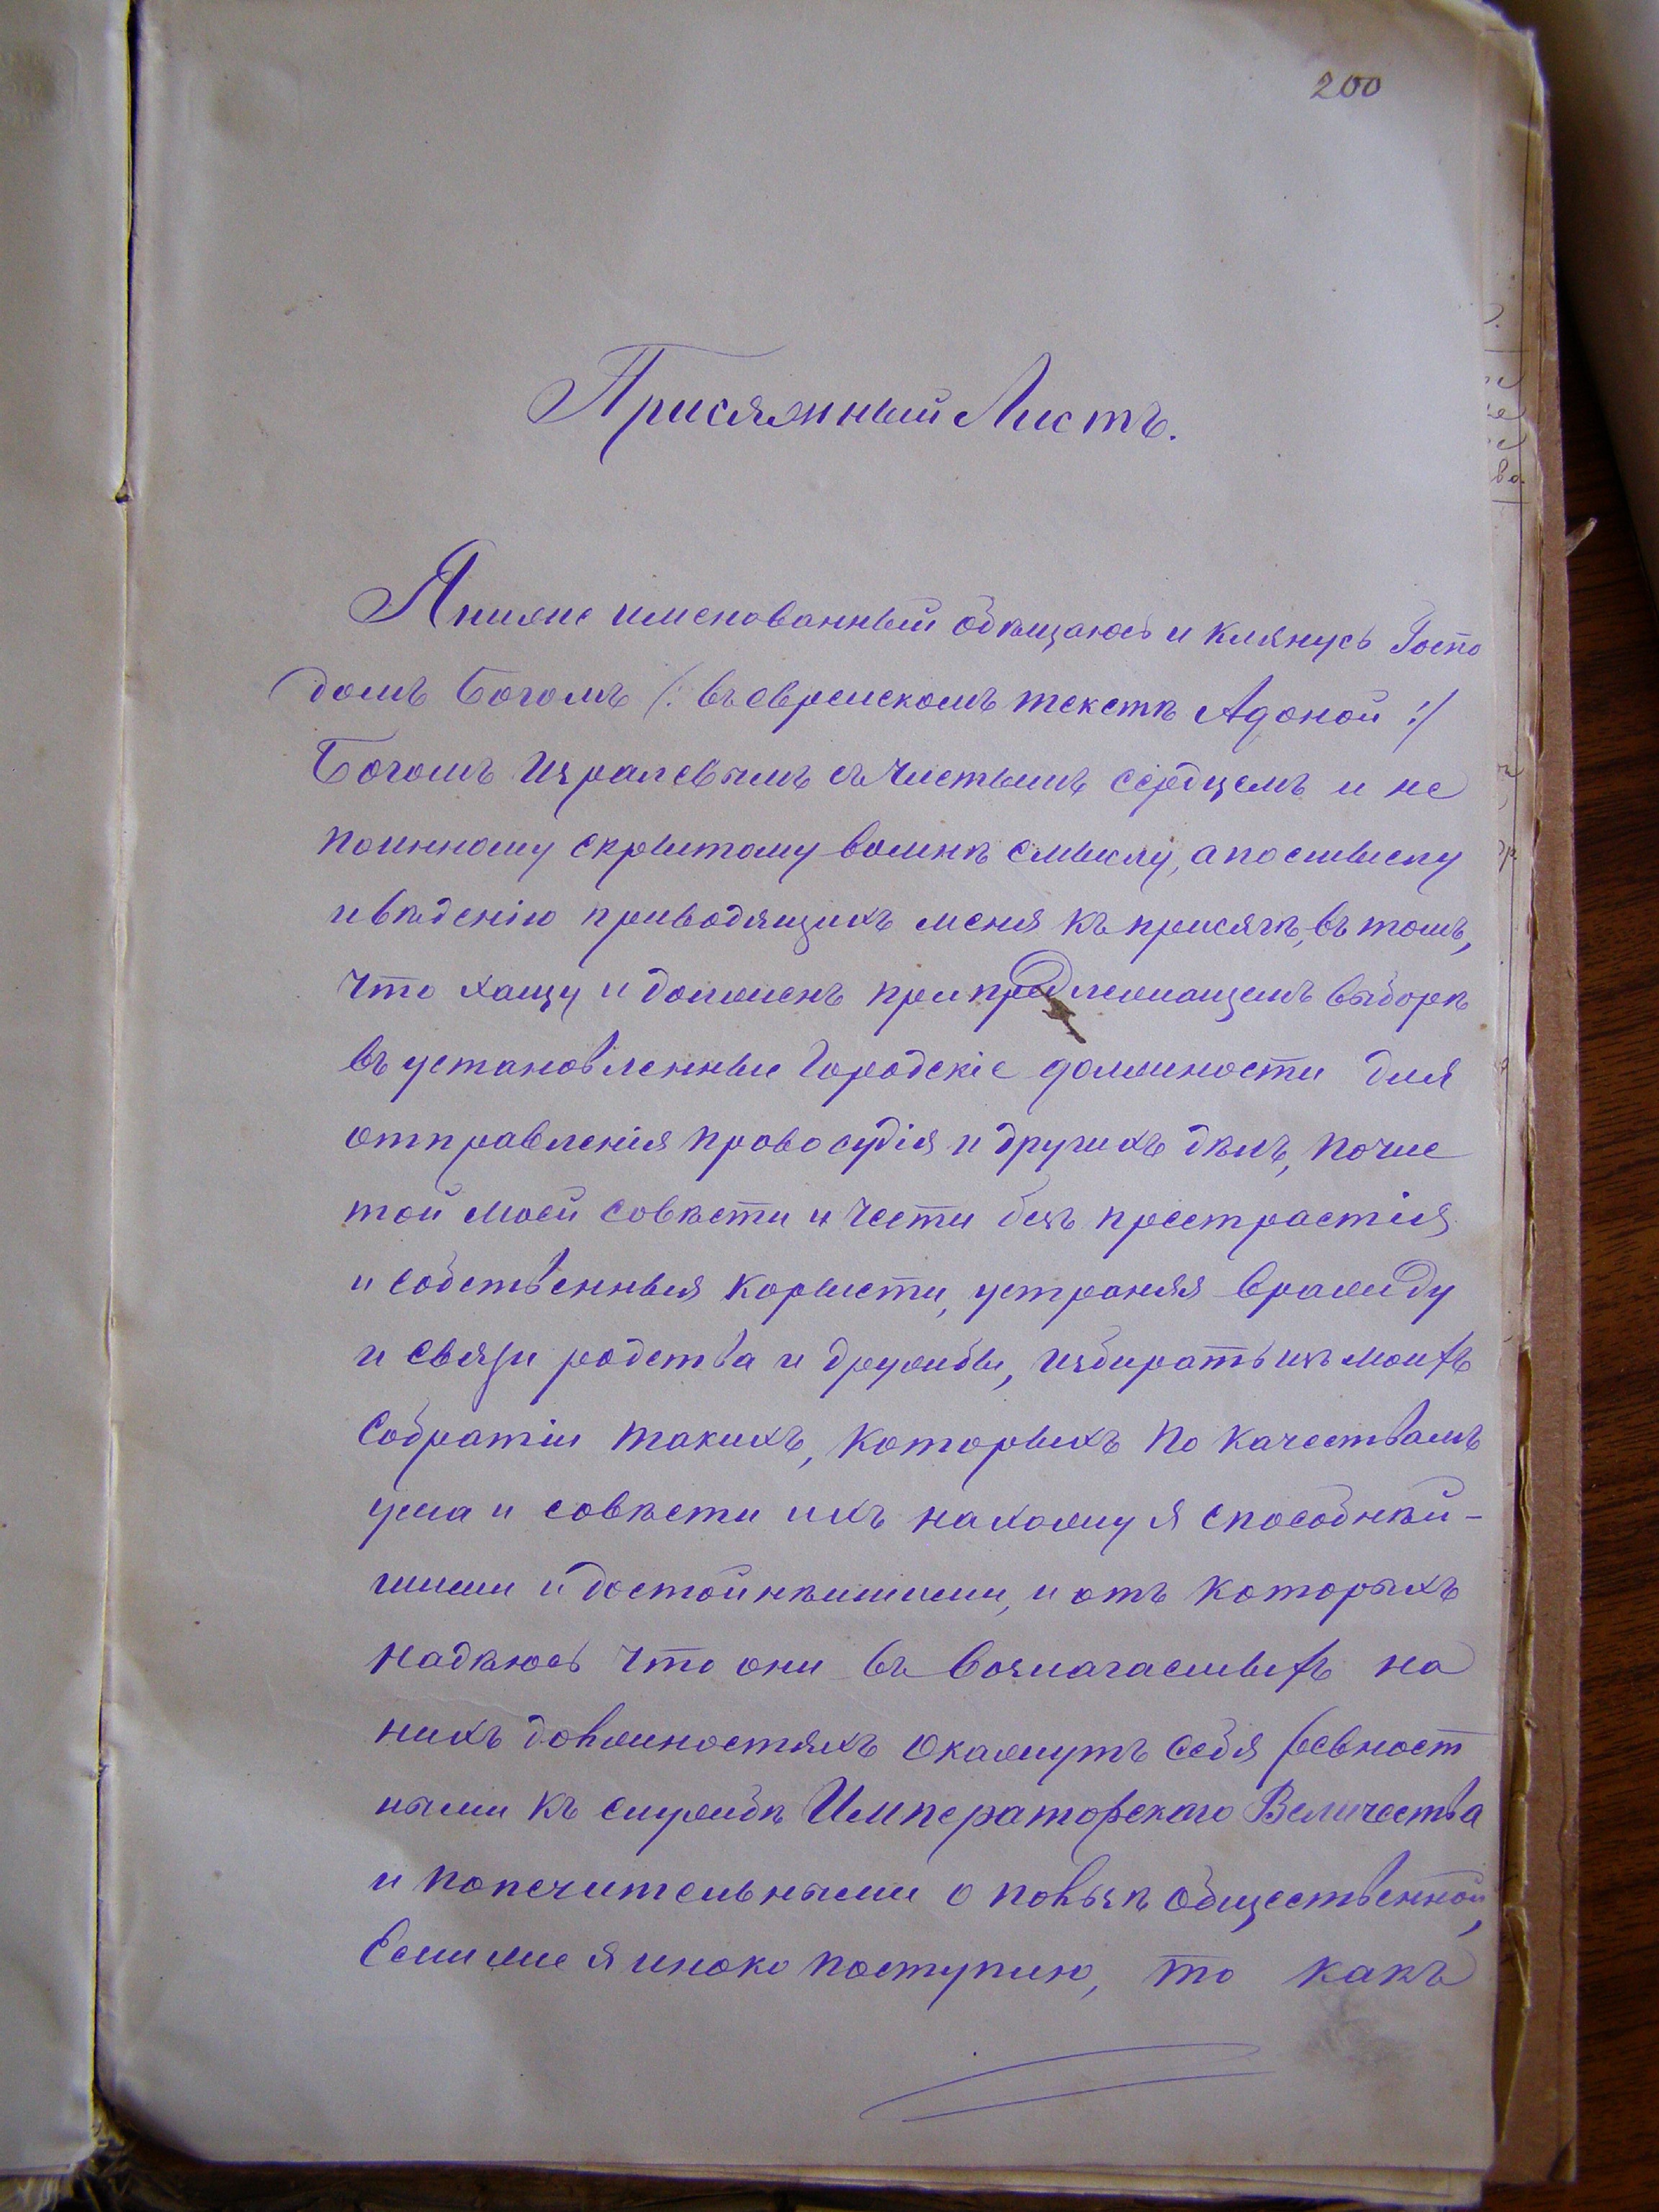 200
Присяжный Листъ.
Я ниже именованный обѣщаюсь и клянусь Госпо
домъ Богомъ /: въ еврейскомъ текстѣ Адоной :/
Богомъ Изралевымъ съ чистымъ сердцемъ и не
по инному скрытому во мнѣ смыслу, а по смыслу
и вѣдѣнію приводящихъ меня къ присягѣ, въ томъ,
что хащу и долженъ при предлежащемъ выборѣ
въ установленные Городскіе должности для
отправленія провосудія и другихъ дѣлъ, по чис
той моей совѣсти и чести безъ престрастія
и собственныя корысти, устраняя вражду
и связи родства и дружбы, избирать изъ моихъ
собратіи такихъ, которыхъ по качествамъ
ума и совѣсти ихъ нахожу я способнѣй-
шими и достойнѣишими, и отъ которыхъ
надѣюсь что они въ возлагаемыхъ на
нихъ должностяхъ окажутъ себя ревност
ными къ службѣ Императорскаго Величества
и попечительными о пользѣ общественной,
Если же я иноко поступлю, то какъ